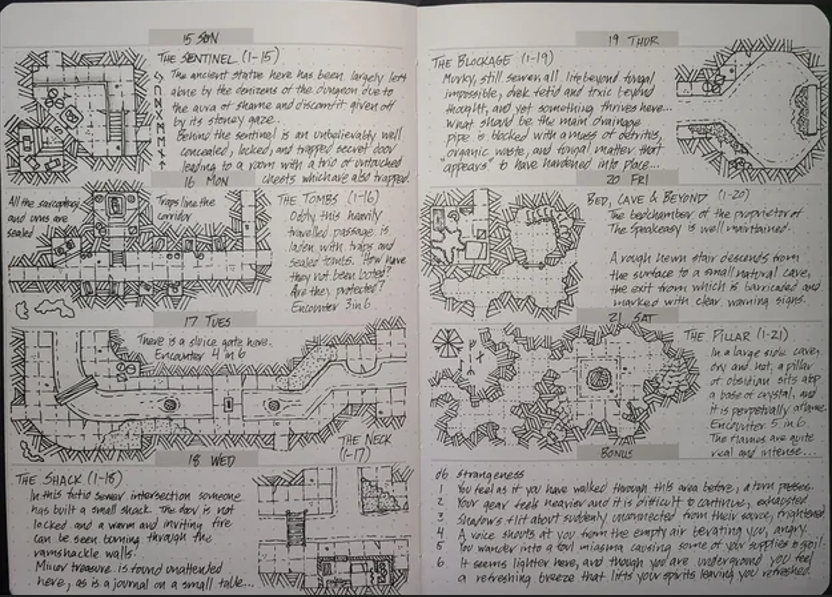 15 SUN
THE SENTINEL (1-15)
The ancient statue here has been largely left
alone by the denizens of the dungeon due to
the aura of shame and discomfit given off
by its stoney gaze.
Behind the sentinel is an unbelievably well
concealed, locked, and trapped secret door
leading to a room with a trio of untouched
chests which are also trapped.
16 MON
All the sarcophagi
and urns are
sealed
Traps line the
corridor
THE TOMBS (1-16)
Oddly this heavily
travelled passage is
laden with traps and
sealed tombs. How have
they not been looted?
Are they protected?
Encounter 3 in 6
17 TUES
There is a sluice gate here.
Encounter 4 in 6
THE NECK
(1-17)
18 WED
THE SHACK (1-18)
In this fetid sewer intersection someone
has built a small shack. The door is not
locked and a warm and inviting fire
can be seen burning through the
ramshackle walls.
Minor treasure is found unattended
here, as is a journal on a small table...
19 THUR
THE BLOCKAGE (1-19)
Murky, still sewer, all life beyond fungal
impossible, drek fetid and toxic beyond
thought, and yet something thrives here...
What should be the main drainage
pipe is blocked with a mass of detritis,
organic waste, and fungal matter that
"appears" to have hardened into place...
20 FRI
BED, CAVE & BEYOND (1-20)
The bedchamber of the proprietor of
The Speakeasy is well maintained.
A rough hewn stair descends from
the surface to a small natural cave,
the exit from which is barricaded and
marked with clear warning signs.
21 SAT
THE PILLAR (1-21)
In a large side cave,
dry and hot, a pillar
of obsidian sits atop
a base of crystal, and
it is perpetually aflame.
Encounter 5 in 6
The flames are quite
real and intense...
BONUS
d6 strangeness
1 You feel as if you have walked through this area before, a turn passes.
2 Your gear feels heavier and it is difficult to continue, exhausted
3 Shadows flit about suddenly unconnected from their source, frightened
4 A voice shouts at you from the empty air berating you, angry.
5 You wander into a foul miasma causing some of your supplies to spoil.
6 It seems lighter here, and though you are underground you feel
a refreshing breeze that lifts your spirits leaving you refreshed.